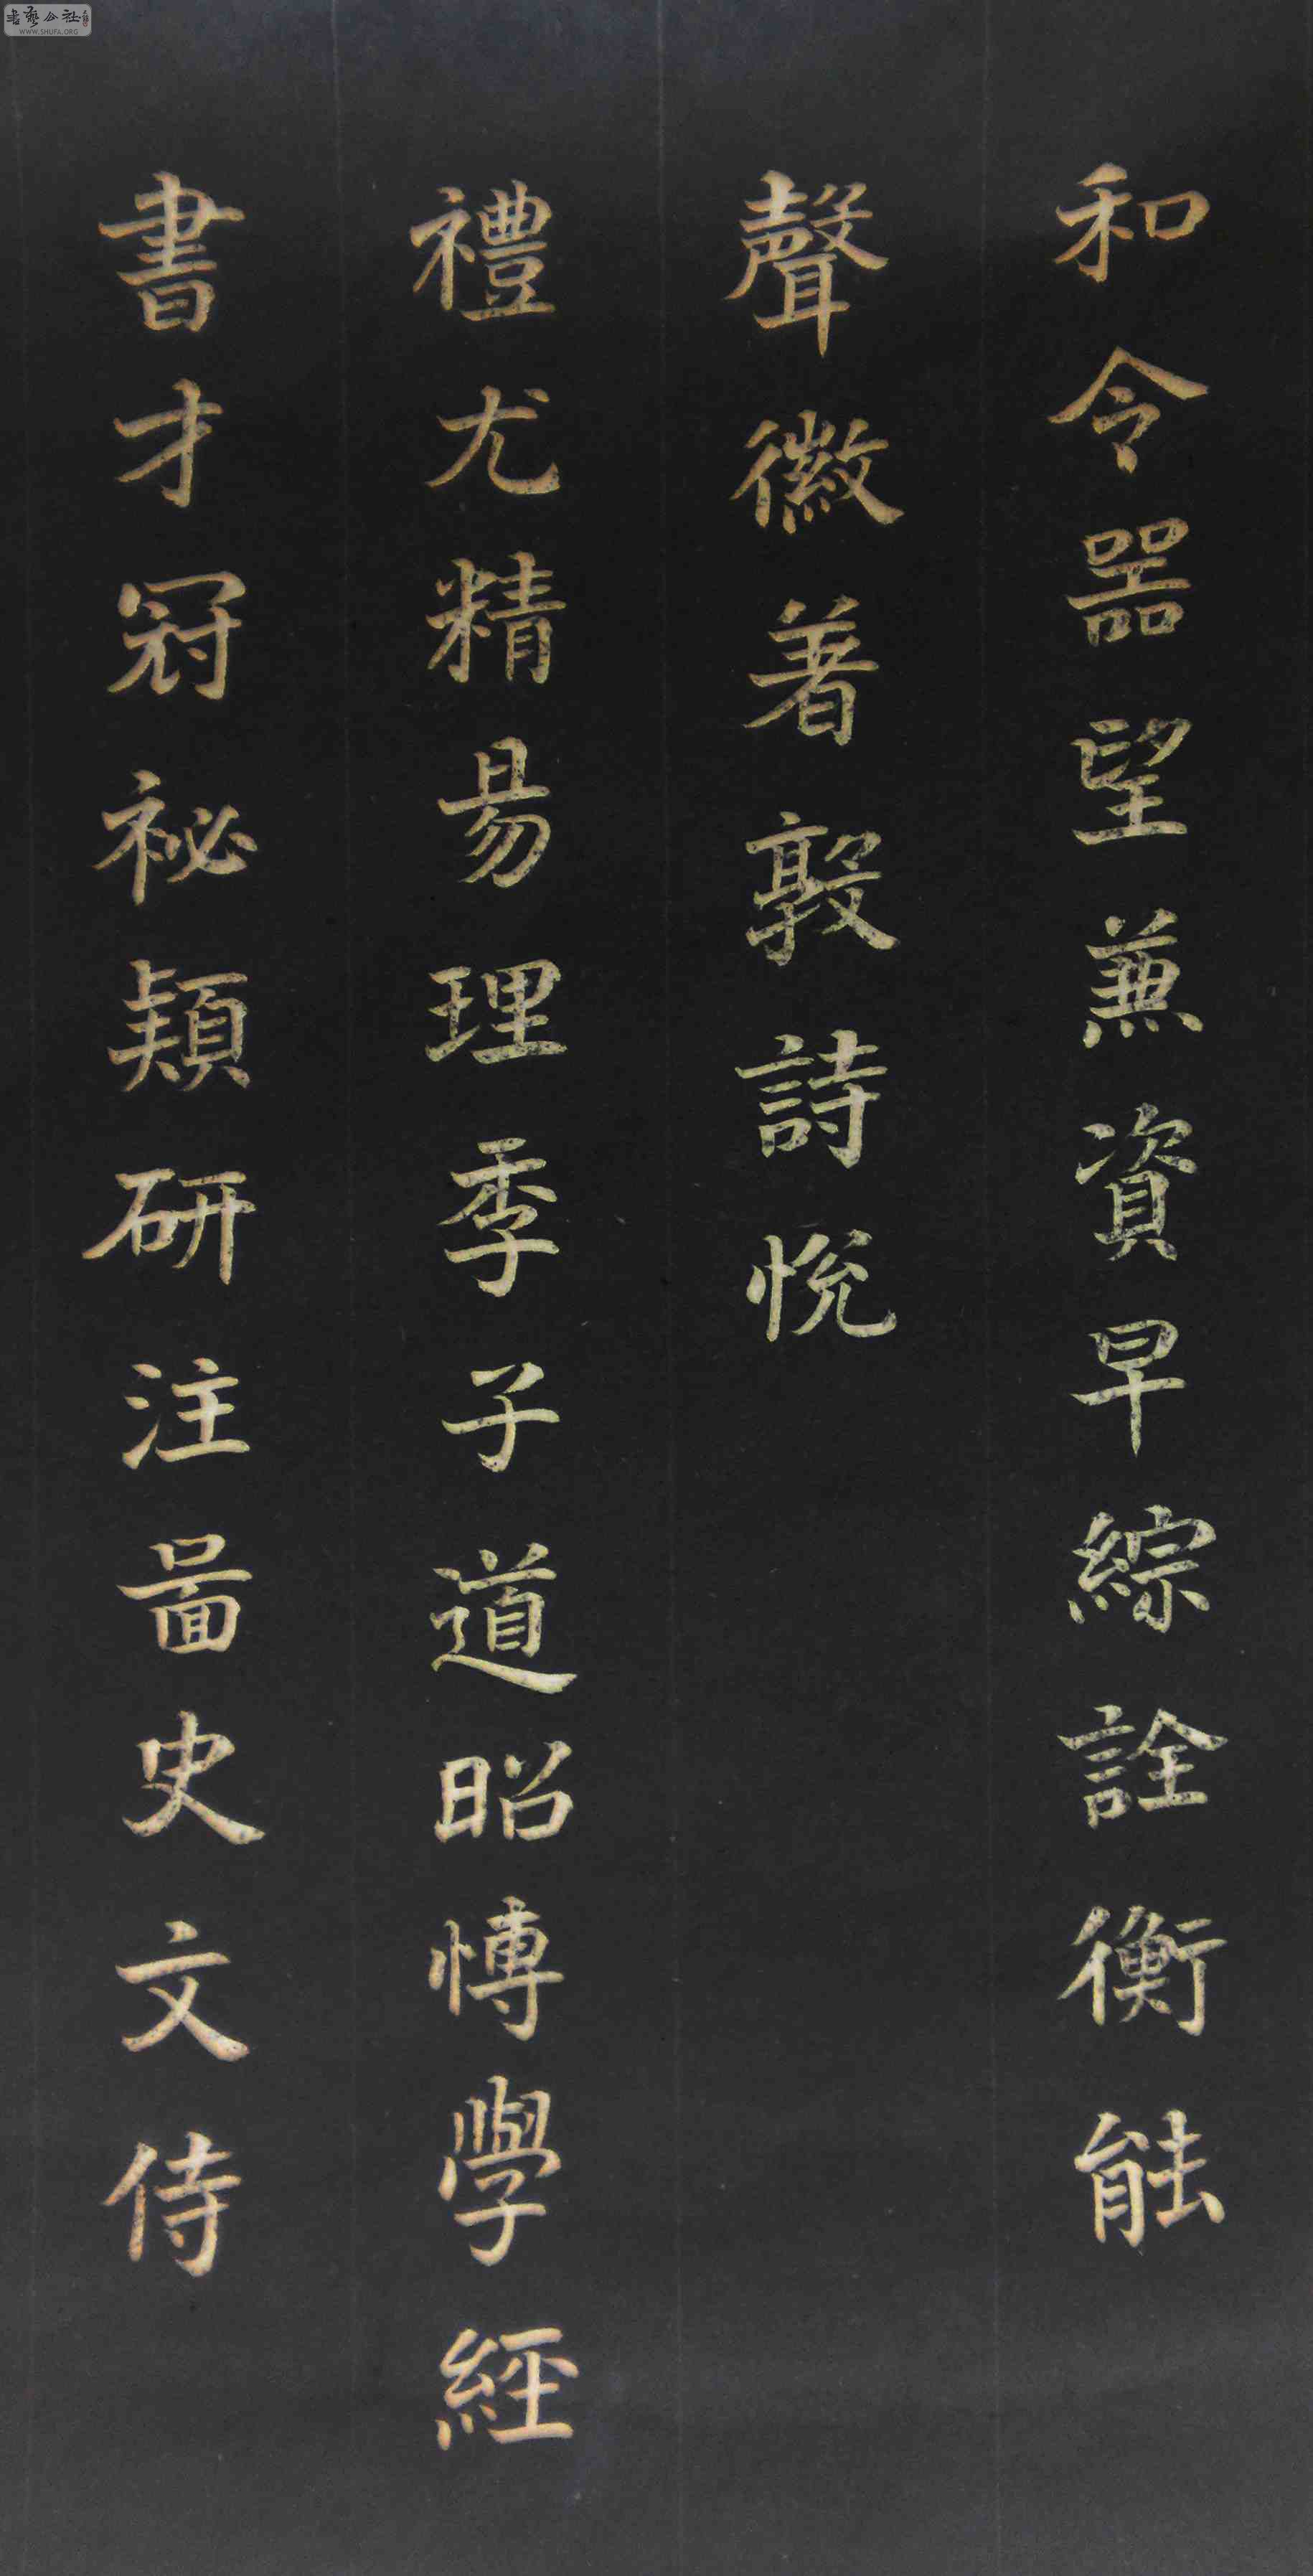 和令器望兼資早綜詮衡能
聲徽著敦詩悅
禮尤精易理季子道昭博學經
書才冠祕穎研注圖史文侍
書藝公社
WWW.SHUFA.ORG